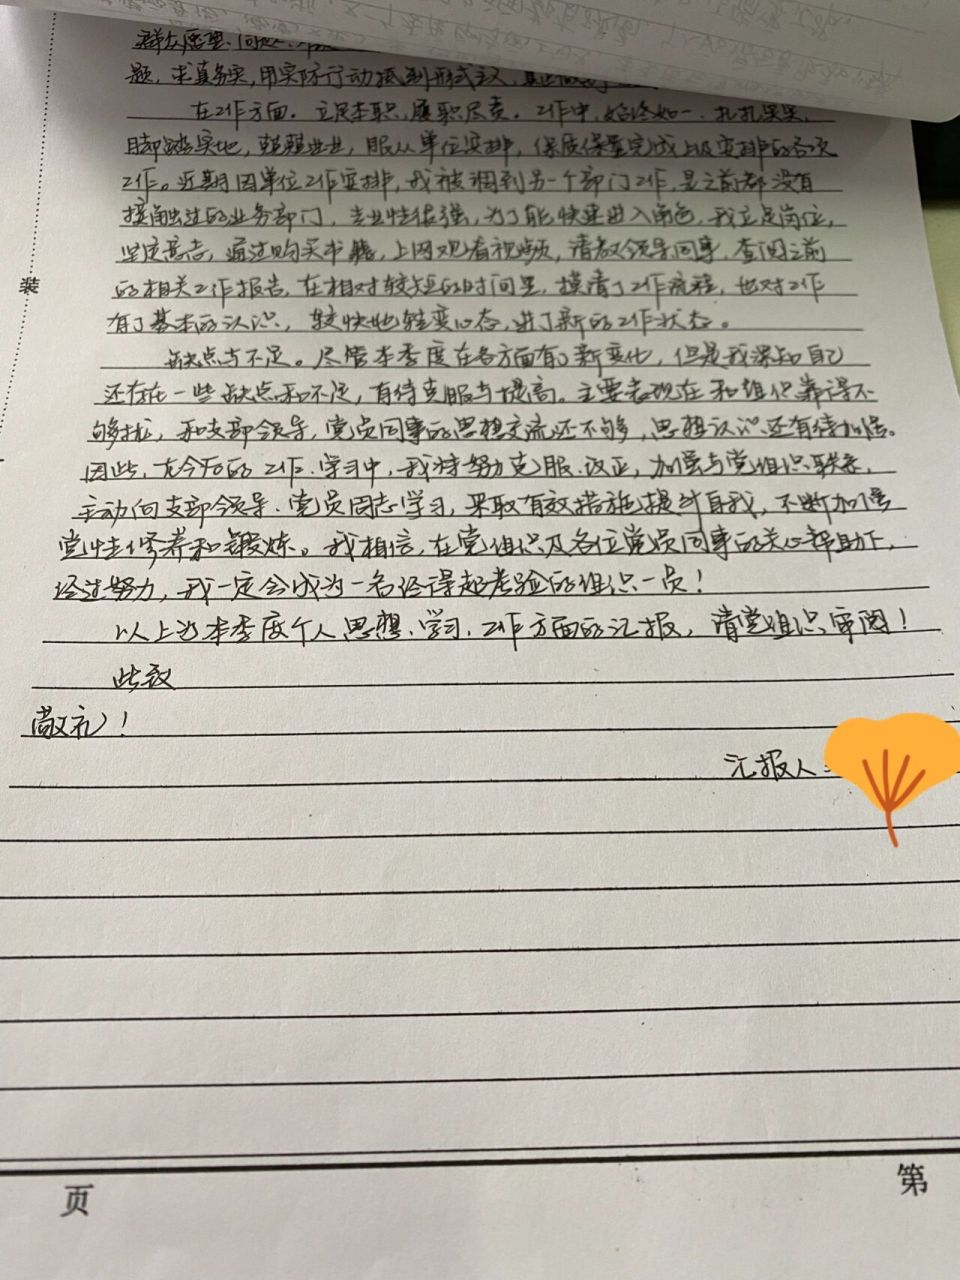 群众愿望、问题、
题，求真务实，用实际行动抵制形式主义，
在工作方面。立足本职，履职尽责。工作中，始终如一、扎扎实实、
脚踏实地，兢兢业业，服从单位安排，保质保量完成上级安排的各项
工作。近期因单位工作安排，我被调到另一个部门工作，是之前都没有
接触过的业务部门，专业性很强，为了能快速进入角色，我立足岗位，
坚定意志，通过购买书籍，上网观看视频，请教领导同事，查阅之前
的相关工作报告，在相对较短的时间里，摸清了工作流程，也对工作
有了基本的认识，较快地转变心态，进了新的工作状态。
缺点与不足。尽管本季度在各方面有了新变化，但是我深知自己
还存在一些缺点和不足，有待克服与提高。主要表现在和组织靠得不
够拢，和支部领导，党员同事的思想交流还不够，思想认识还有待加强。
因此，在今后的工作、学习中，我将努力克服、改正，加强与党组织联系，
主动向支部领导、党员同志学习，采取有效措施提升自我，不断加强
党性修养和锻炼。我相信，在党组织及各位党员同事的关心帮助下，
经过努力，我一定会成为一名经得起考验的组织一员！
以上为本季度个人思想、学习、工作方面的汇报，请党组织审阅！
此致
敬礼！
汇报人：
装
页
第